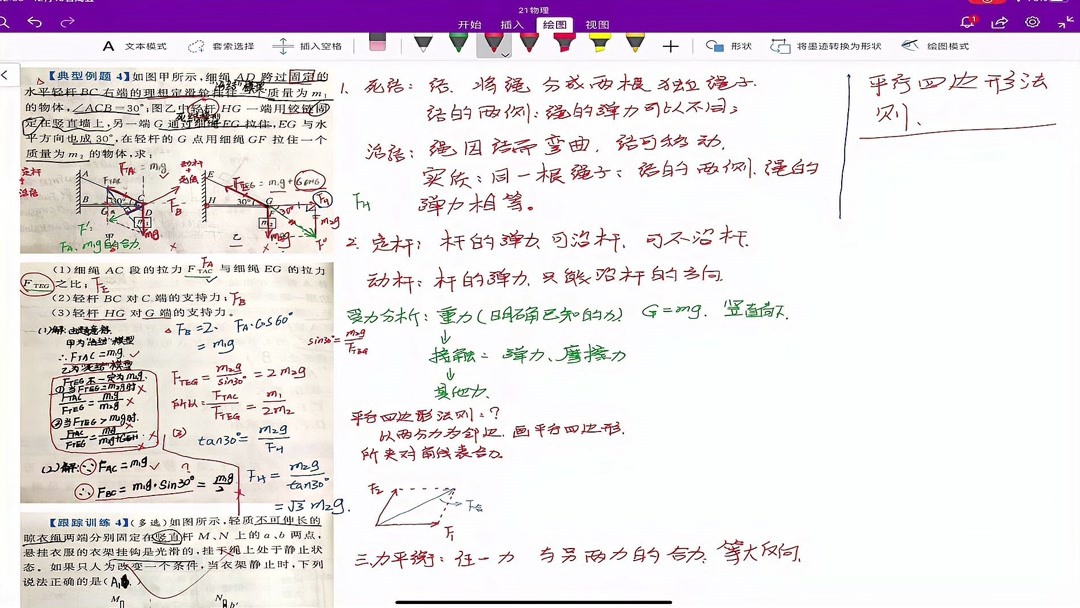 21物理
开始 插入 绘图 视图
文本模式 套索选择 插入空格 形状 将墨迹转换为形状 绘图模式
【典型例题 4】如图甲所示,细绳 AD 跨过固定的
水平轻杆 BC 右端的理想定滑轮挂住一个质量为 m₁
的物体,∠ACB=30°;图乙中轻杆 HG 一端用铰链固
定在竖直墙上,另一端 G 通过细绳 EG 拉住,EG 与水
平方向也成 30°,在轻杆的 G 点用细绳 GF 拉住一个
质量为 m₂ 的物体,求:
定杆 活结
动杆 死结
甲 乙
F_A, m₁g的合力
(1)细绳 AC 段的拉力 F_TAC 与细绳 EG 的拉力
F_TEG 之比;
(2)轻杆 BC 对 C 端的支持力;
(3)轻杆 HG 对 G 端的支持力。
(1)解: 由题意得
甲为"活结"模型
∴F_TAC=m₁g
乙为"死结"模型
F_TEG不一定为m₂g
①当F_TEG=m₂g时
F_TAC/F_TEG=m₁g/m₂g
②当F_TEG>m₂g时
(2)解: ∵F_AC=m₁g
∴F_BC=m₁g·sin30°=m₁g/2
F_B=2·F_A·cos60°
=m₁g
sin30°=m₂g/F_TEG
F_TEG=m₂g/sin30°=2m₂g
所以=F_TAC/F_TEG=m₁/2m₂
(3)
tan30°=m₂g/F_H
F_H=m₂g/tan30°
=√3 m₂g.
【跟踪训练 4】(多选)如图所示,轻质不可伸长的
晾衣绳两端分别固定在竖直杆 M、N 上的 a、b 两点,
悬挂衣服的衣架挂钩是光滑的,挂于绳上处于静止状
态。如果只人为改变一个条件,当衣架静止时,下列
说法正确的是(
M N b'
1. 死结: 结. 将绳分成两根独立绳子.
结的两侧: 绳的弹力可以不同;
活结: 绳因结而弯曲. 结可移动.
实质: 同一根绳子: 结的两侧. 绳的
弹力相等。
2. 定杆: 杆的弹力可沿杆. 可不沿杆.
动杆: 杆的弹力, 只能沿杆的方向.
受力分析: 重力(明确已知的力) G=mg. 竖直向下.
↓
接触: 弹力、摩擦力
↓
其他力.
平行四边形法则:?
以两分力为邻边. 画平行四边形.
所夹对角线表合力.
F₂ F合
F₁
三力平衡: 任一力 与另两力的合力. 等大反向.
平行四边形法
则.